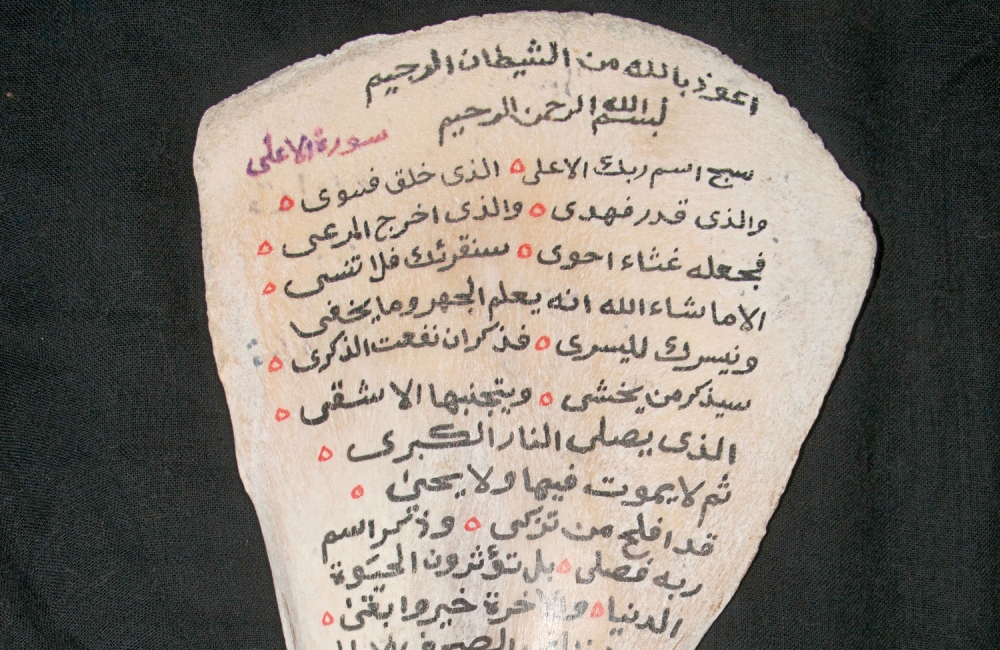 اعوذ بالله من الشيطان الرجيم
بسم الله الرحمن الرحيم
سورة الاعلى
سبح اسم ربك الاعلى ه الذى خلق فسوى ه
والذى قدر فهدى ه والذى اخرج المرعى ه
فجعله غثاء احوى ه سنقرئك فلا تنسى ه
الا ما شاء الله انه يعلم الجهر وما يخفى
ونيسرك لليسرى ه فذكر ان نفعت الذكرى ه
سيذكر من يخشى ه ويتجنبها الاشقى ه
الذى يصلى النار الكبرى ه
ثم لا يموت فيها ولا يحيىٰ ه
قد افلح من تزكى ه وذكر اسم
ربه فصلى ه بل تؤثرون الحيوة
الدنيا ه والاخرة خير وابقىٰ ه